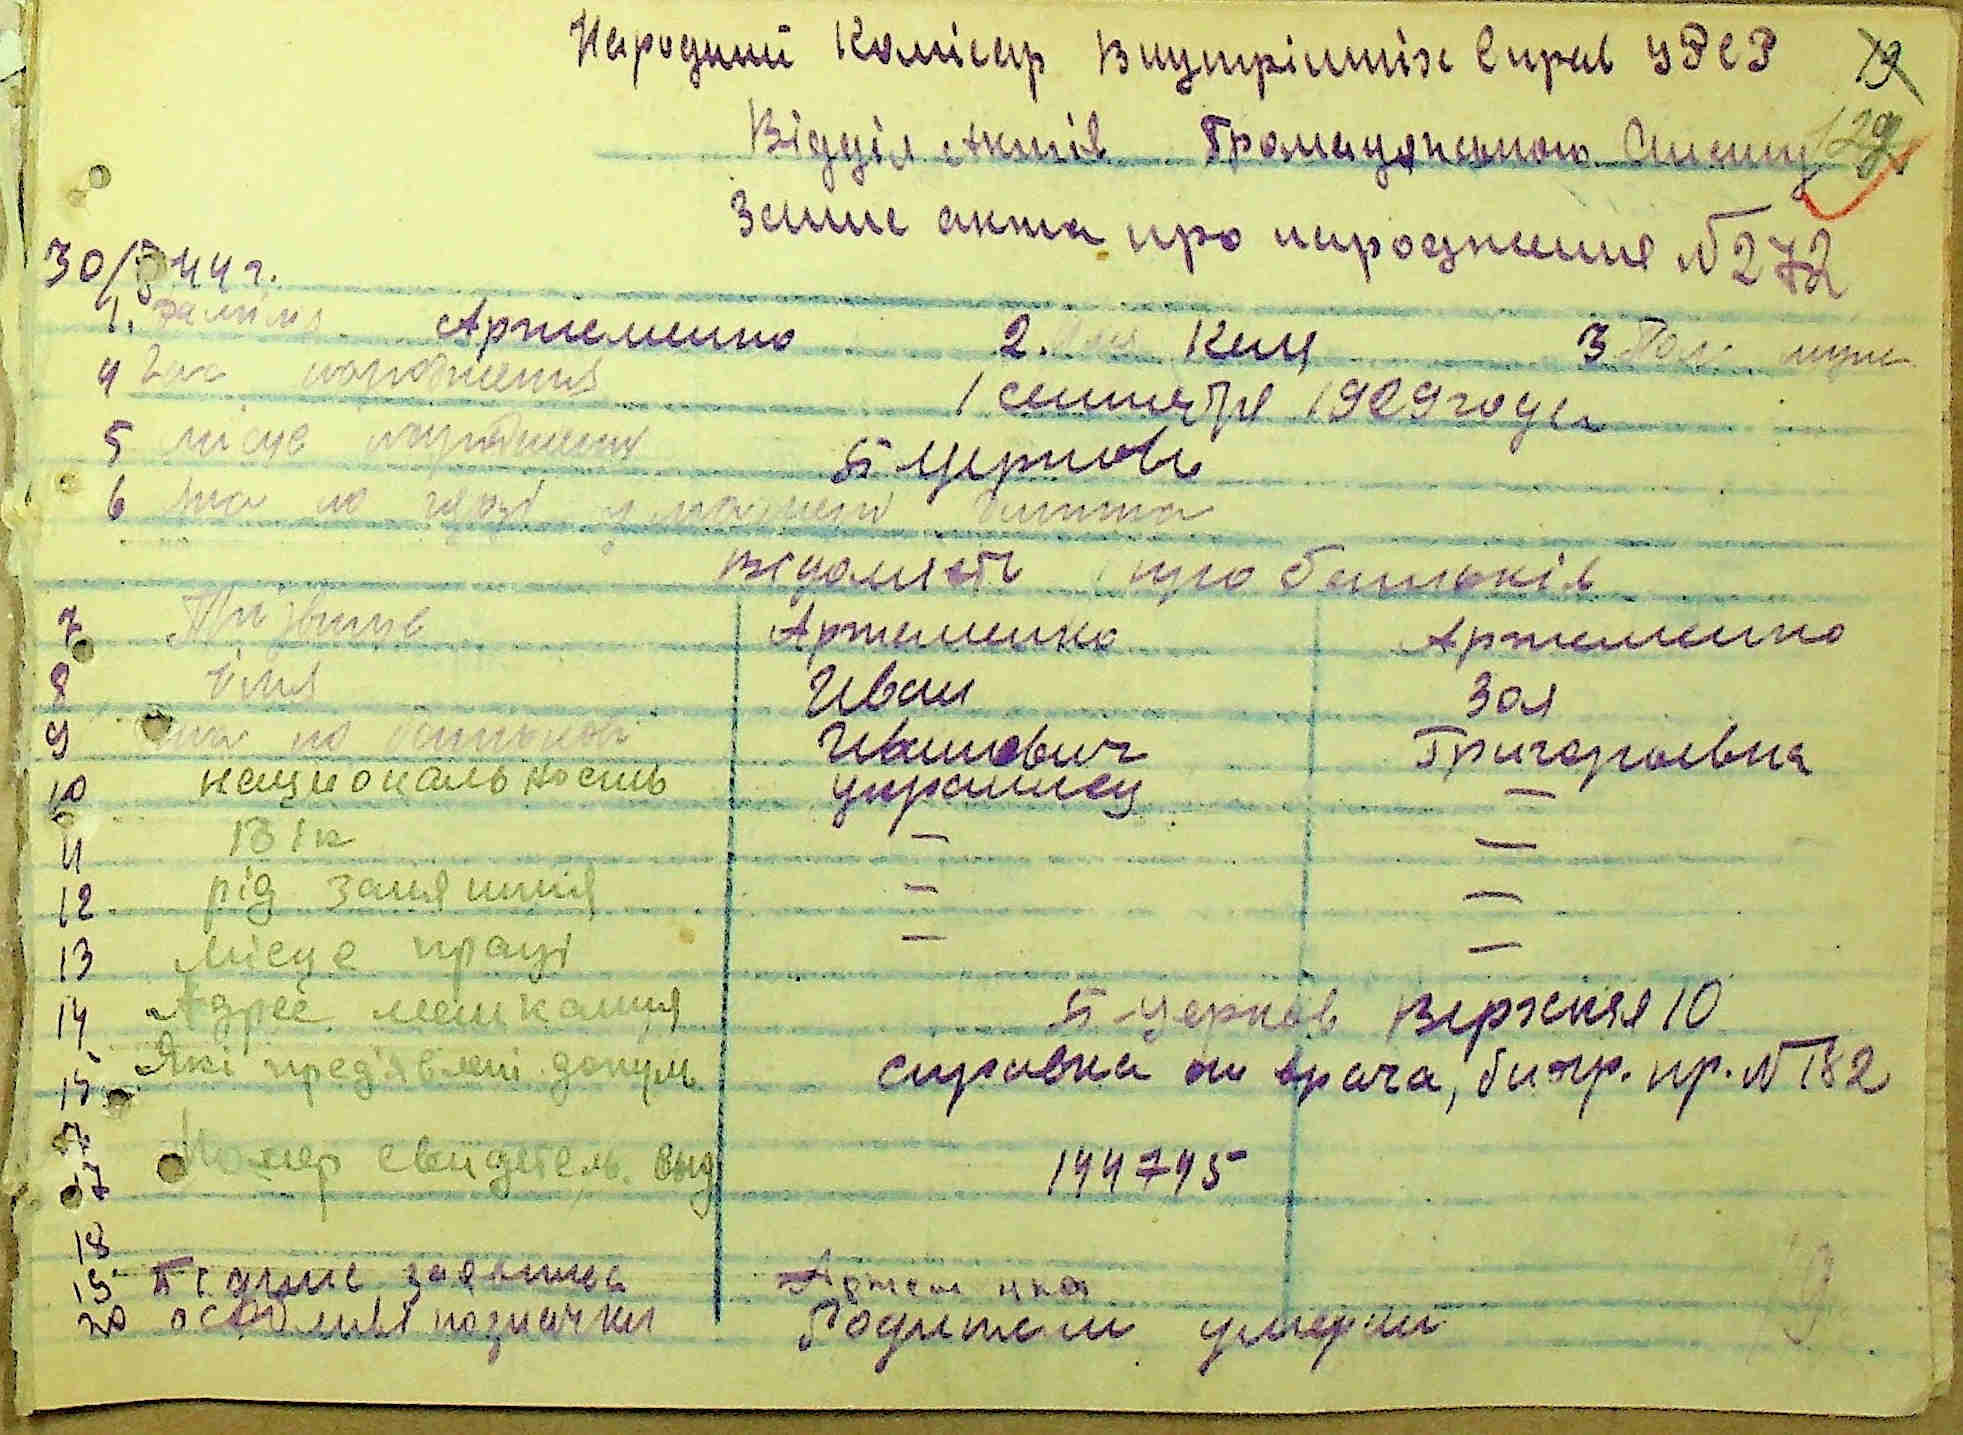 Народний Комісар Внутрішніх Справ УРСР
129
Відділ Актів Громадянського Стану
Запис акта про народження № 272
30/ 44 г.
1. Фамілія Артеменко 2. Імя 3 Пол муж
4 Час народження 1 сентября 1909 года
5 місце народження Б Церковь
6 яка по черзі у матері дитина
Відомість про батьків
7 Прізвище Артеменко Артеменко
8 Імя Иван Зоя
9 по батькові Иванович Григорьевна
10 национальность украинец —
11 Вік — —
12. рід заняття — —
13 Місце праці — —
14 Адрес мешкання Б Церковь 10
15 Які предявлені докум справка от врача, пр. № 182
17 Номер свидетель. выд 144745
18
19 Підпис заявника
20 особливі позначки Родители умерли